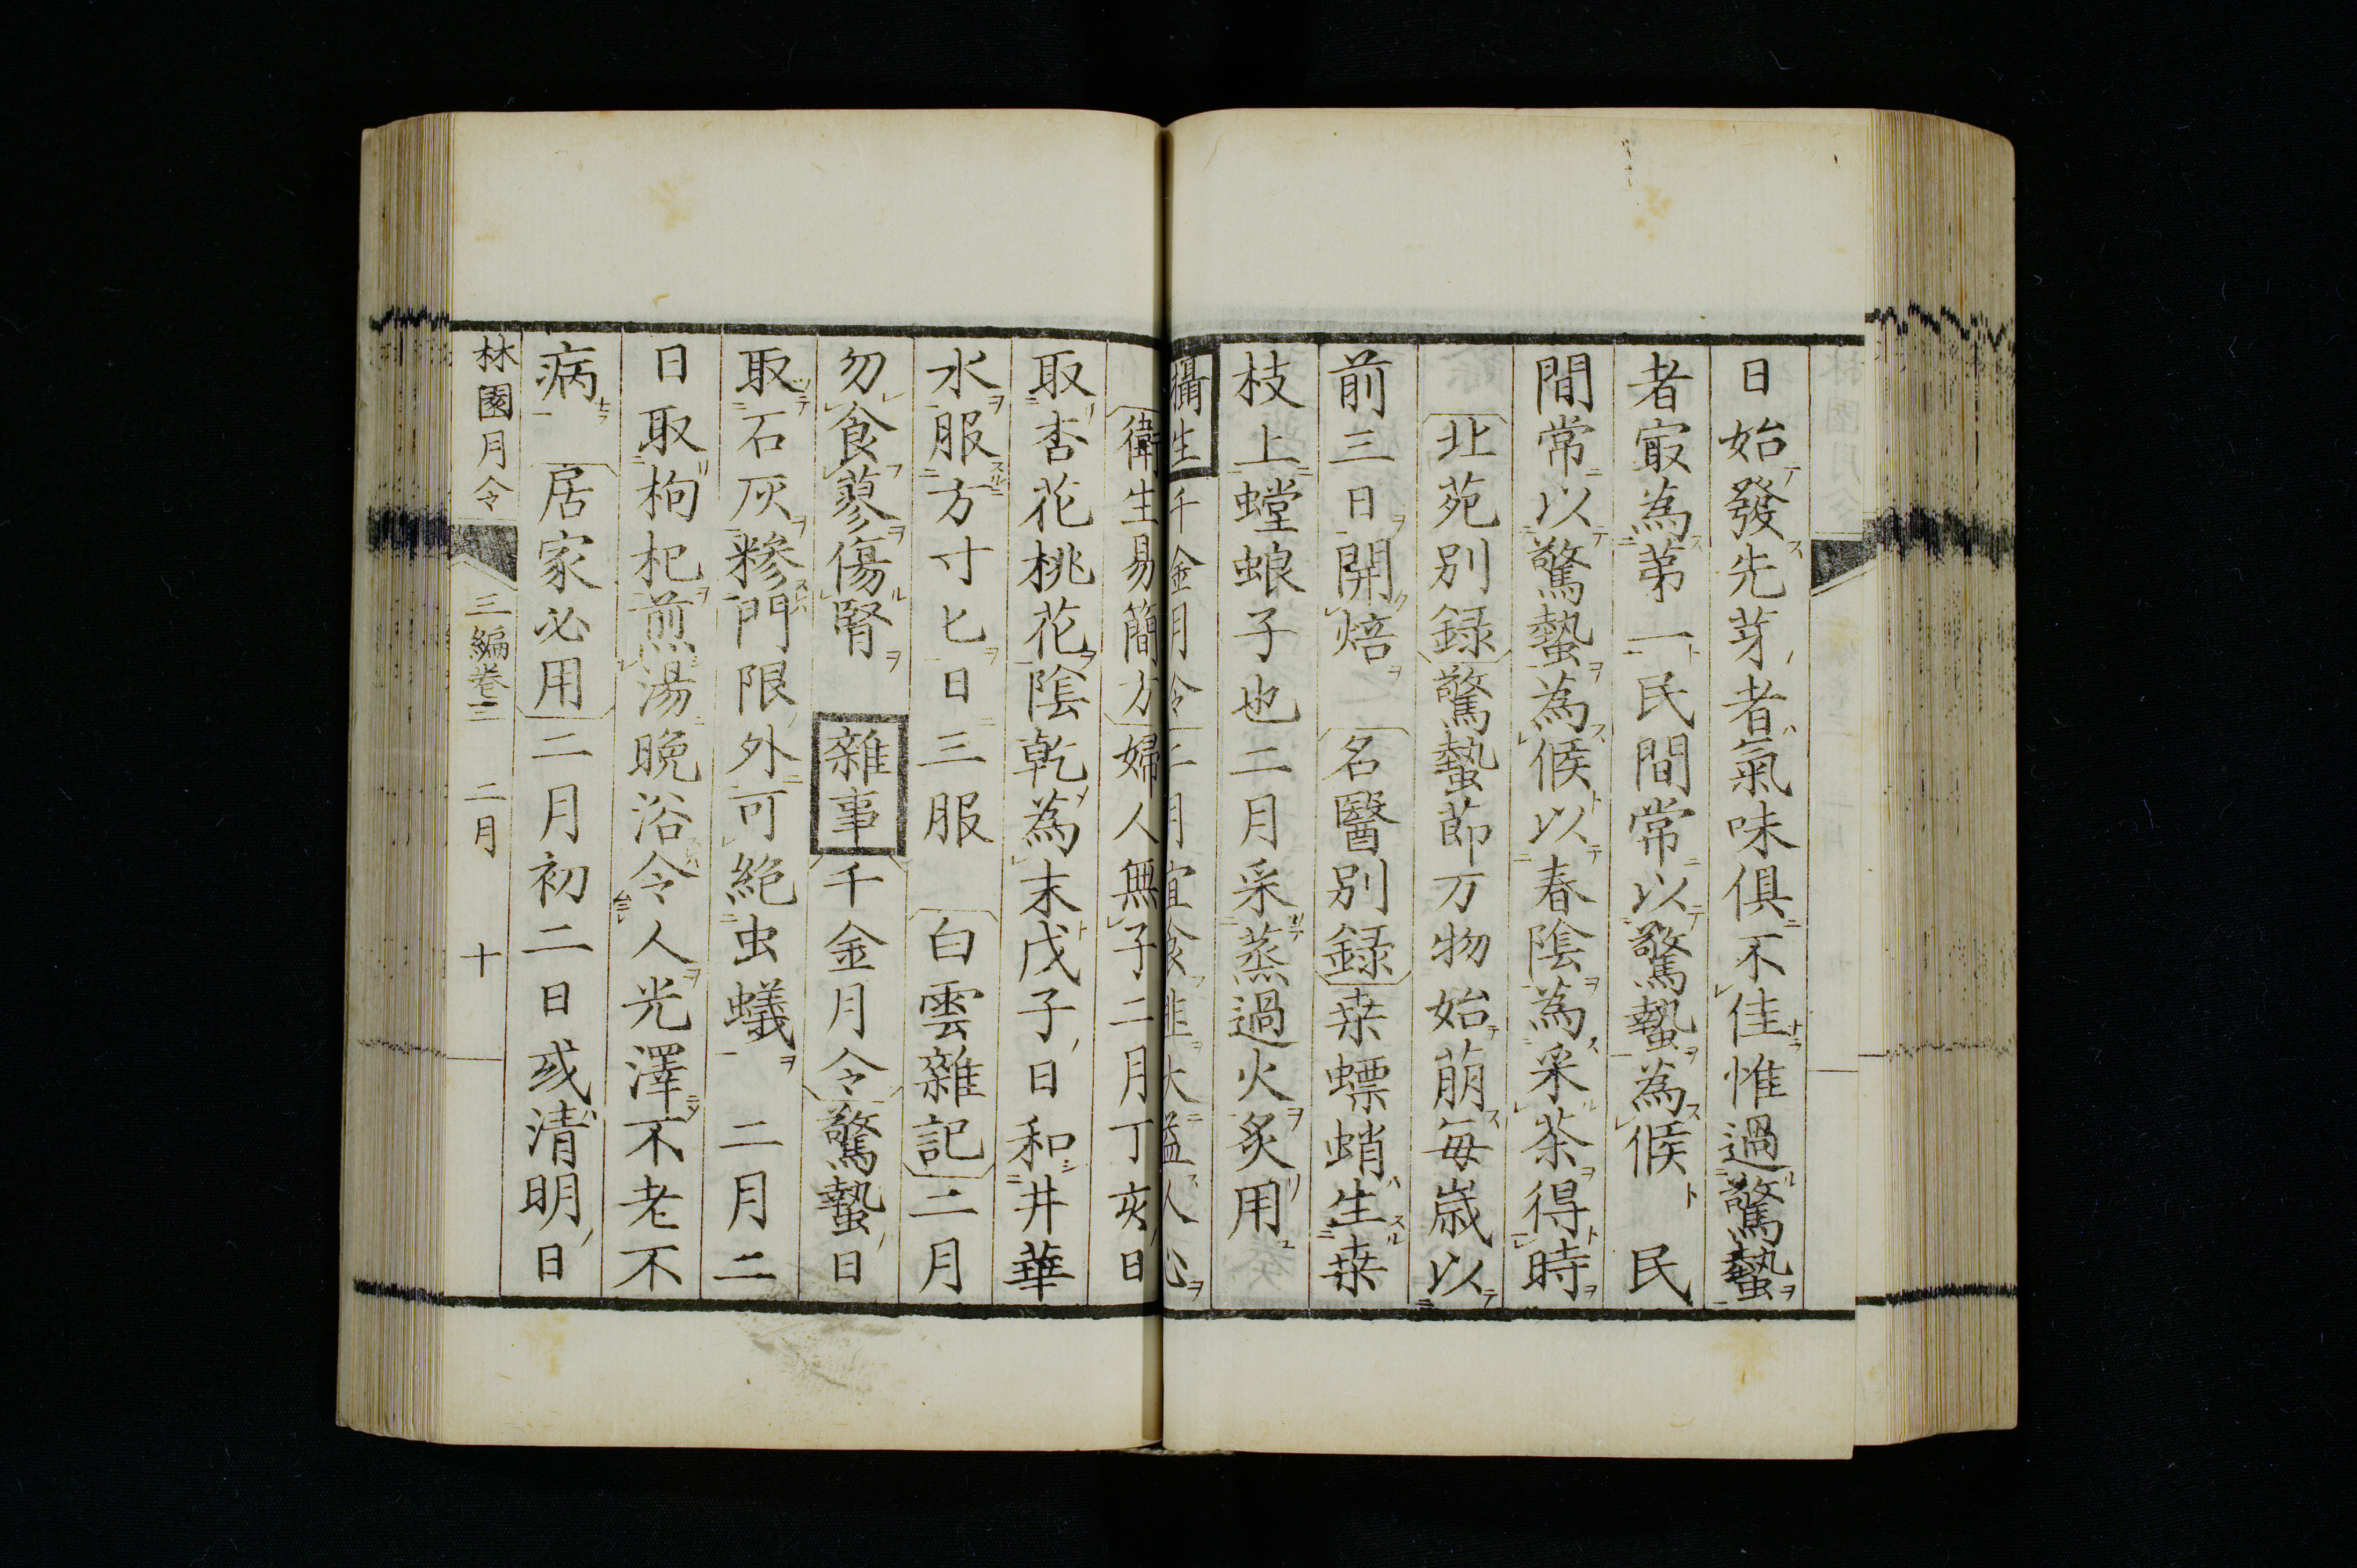 日始發先芽者氣味俱不佳惟過驚蟄
者㝡為第一民間常以驚蟄為候 民
間常以驚蟄為候以春陰為采茶得時
北苑別録驚蟄莭万物始萠每歳以
前三日開焙 名醫別録桒螵蛸生桒
枝上螳蜋子也二月采蒸過火炙用
攝生千金月令二月宜食韭大益人心
衛生易簡方婦人無子二月丁亥日
取杏花桃花陰乾為末戊子日和井華
水服方寸匕日三服 白雲雜記二月
勿食蓼傷腎 雜事千金月令驚蟄日
取石灰糝門限外可絶虫蟻 二月二
日取枸杞煎湯晩浴令人光澤不老不
病 居家必用二月初二日或清明日
林園月令 三編卷三 二月 十